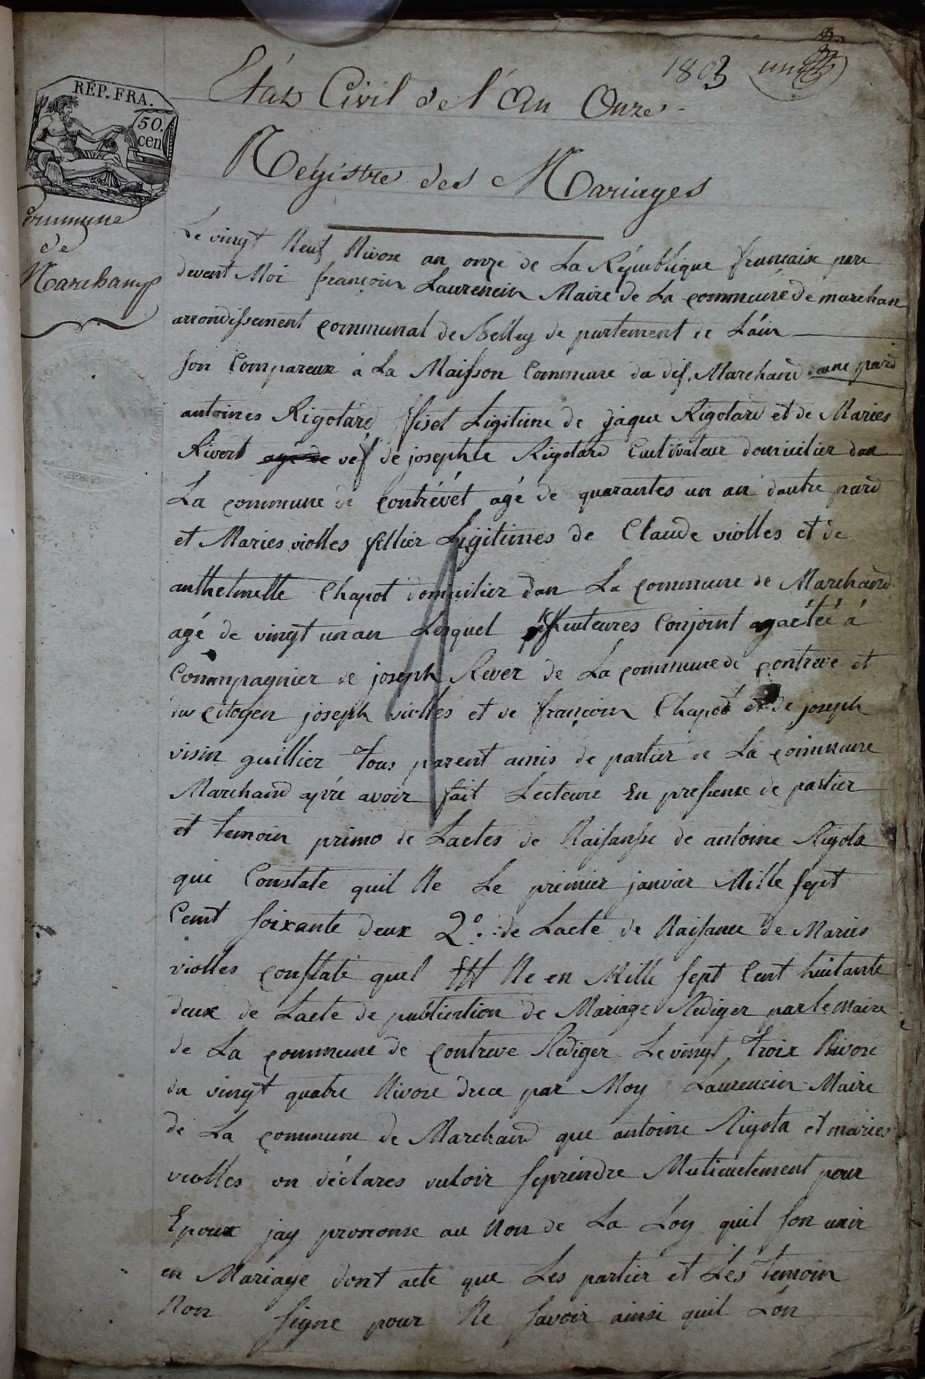 1803
un
Etat Civil de l'An Onze
RÉP. FRA.
50.
cen
Registre des Mariages
Commune
de
Marchamp
Le vingt Neuf Nivose an onze de La République francaise par
devent Moi françoin Laurencin Maire de La commune de marchan
arrondissement communal de Belley de partement de L'ain
son Compareux à La Maisson Commune du dit Marchand dune pard
antoines Rigotard fisel Ligitime de jaque Rigotard et de Maries
Rivort vef de josephte Rigotard Cultivateur domicilier dan
La commune de Contrévét agé de quarantes un an dautre pard
et Maries violles fellier Ligitimes de Claude violles et de
anthelmette Chapot domicilier dan La commune de Marchand
agé de vingt un an Lesquel futeures Conjoint à
Compagnier de joseph Rever de La commune de contreve et
du Citoyen joseph violles et de françoin Chapot et de joseph
visin guillier tous parent amis de partier de La commune
Marchand apré avoir fait Lecteure En presense de partier
et temoin primo de Lactes de Naisansse de antoine Rigota
qui Constate quil Ne Le premier janvier Mille sept
Cent soixante deux 2º. de Lacte de Naisance de Maries
violles constaté quel Ne en Mille sept Cent huitante
deux de Lacte de publication de Mariage Rediger par le Maire
de La commune de contreve Rediger Le vingt troix Nivose
du vingt quatre Nivose par Moy Laurencin Maire
de La commune de Marchand que antoine Rigota et maries
violles on déclares vuloir seprendre Mutiuelement pour
Epoux jay prononse au Non de La Loy quil son unir
en Mariage dont acte que Les partier et Les temoin
Non signe pour Ne savoir ainsi quil Lon